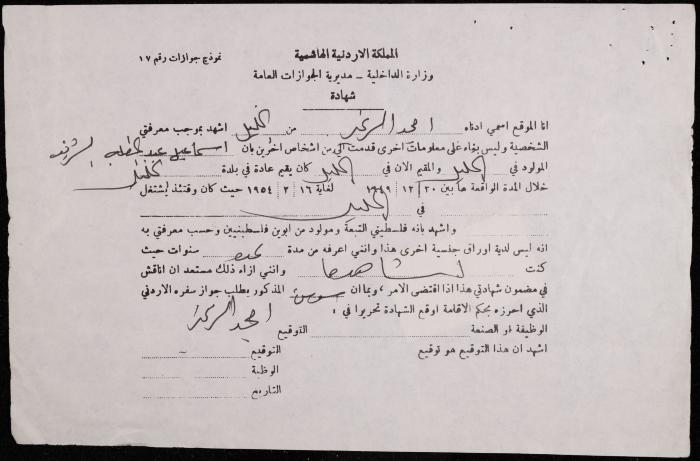 المملكة الاردنية الهاشمية
نموذج جوازات رقم ١٧
وزارة الداخلية - مديرية الجوازات العامة
شهادة
انا الموقع اسمي ادناه امجد من الخليل اشهد بموجب معرفتي
الشخصية وليس بناء على معلومات اخرى قدمت الي من اشخاص اخرين بان اسماعيل عبد
المولود في الخليل والمقيم الان في الخليل كان يقيم عادة في بلدة الخليل
خلال المدة الواقعة ما بين ٢٠ | ١٢ | ١٩٤٩ لغاية ١٦ | ٢ | ١٩٥٤ حيث كان وقتئذ يشتغل
في الخليل
واشهد بانه فلسطيني التبعة ومولود من ابوين فلسطينيين وحسب معرفتي به
انه ليس لدية اوراق جنسية اخرى هذا وانني اعرفه من مدة سنوات حيث
كنت وانني ازاء ذلك مستعد ان اناقش
في مضمون شهادتي هذا اذا اقتضى الامر، وبما ان المذكور يطلب جواز سفره الاردني
الذي احرزه بحكم الاقامة اوقع الشهادة تحريرا في :
الوظيفة او الصنعة التوقيع امجد
اشهد ان هذا التوقيع هو توقيع التوقيع
الوظبة
التاريخ